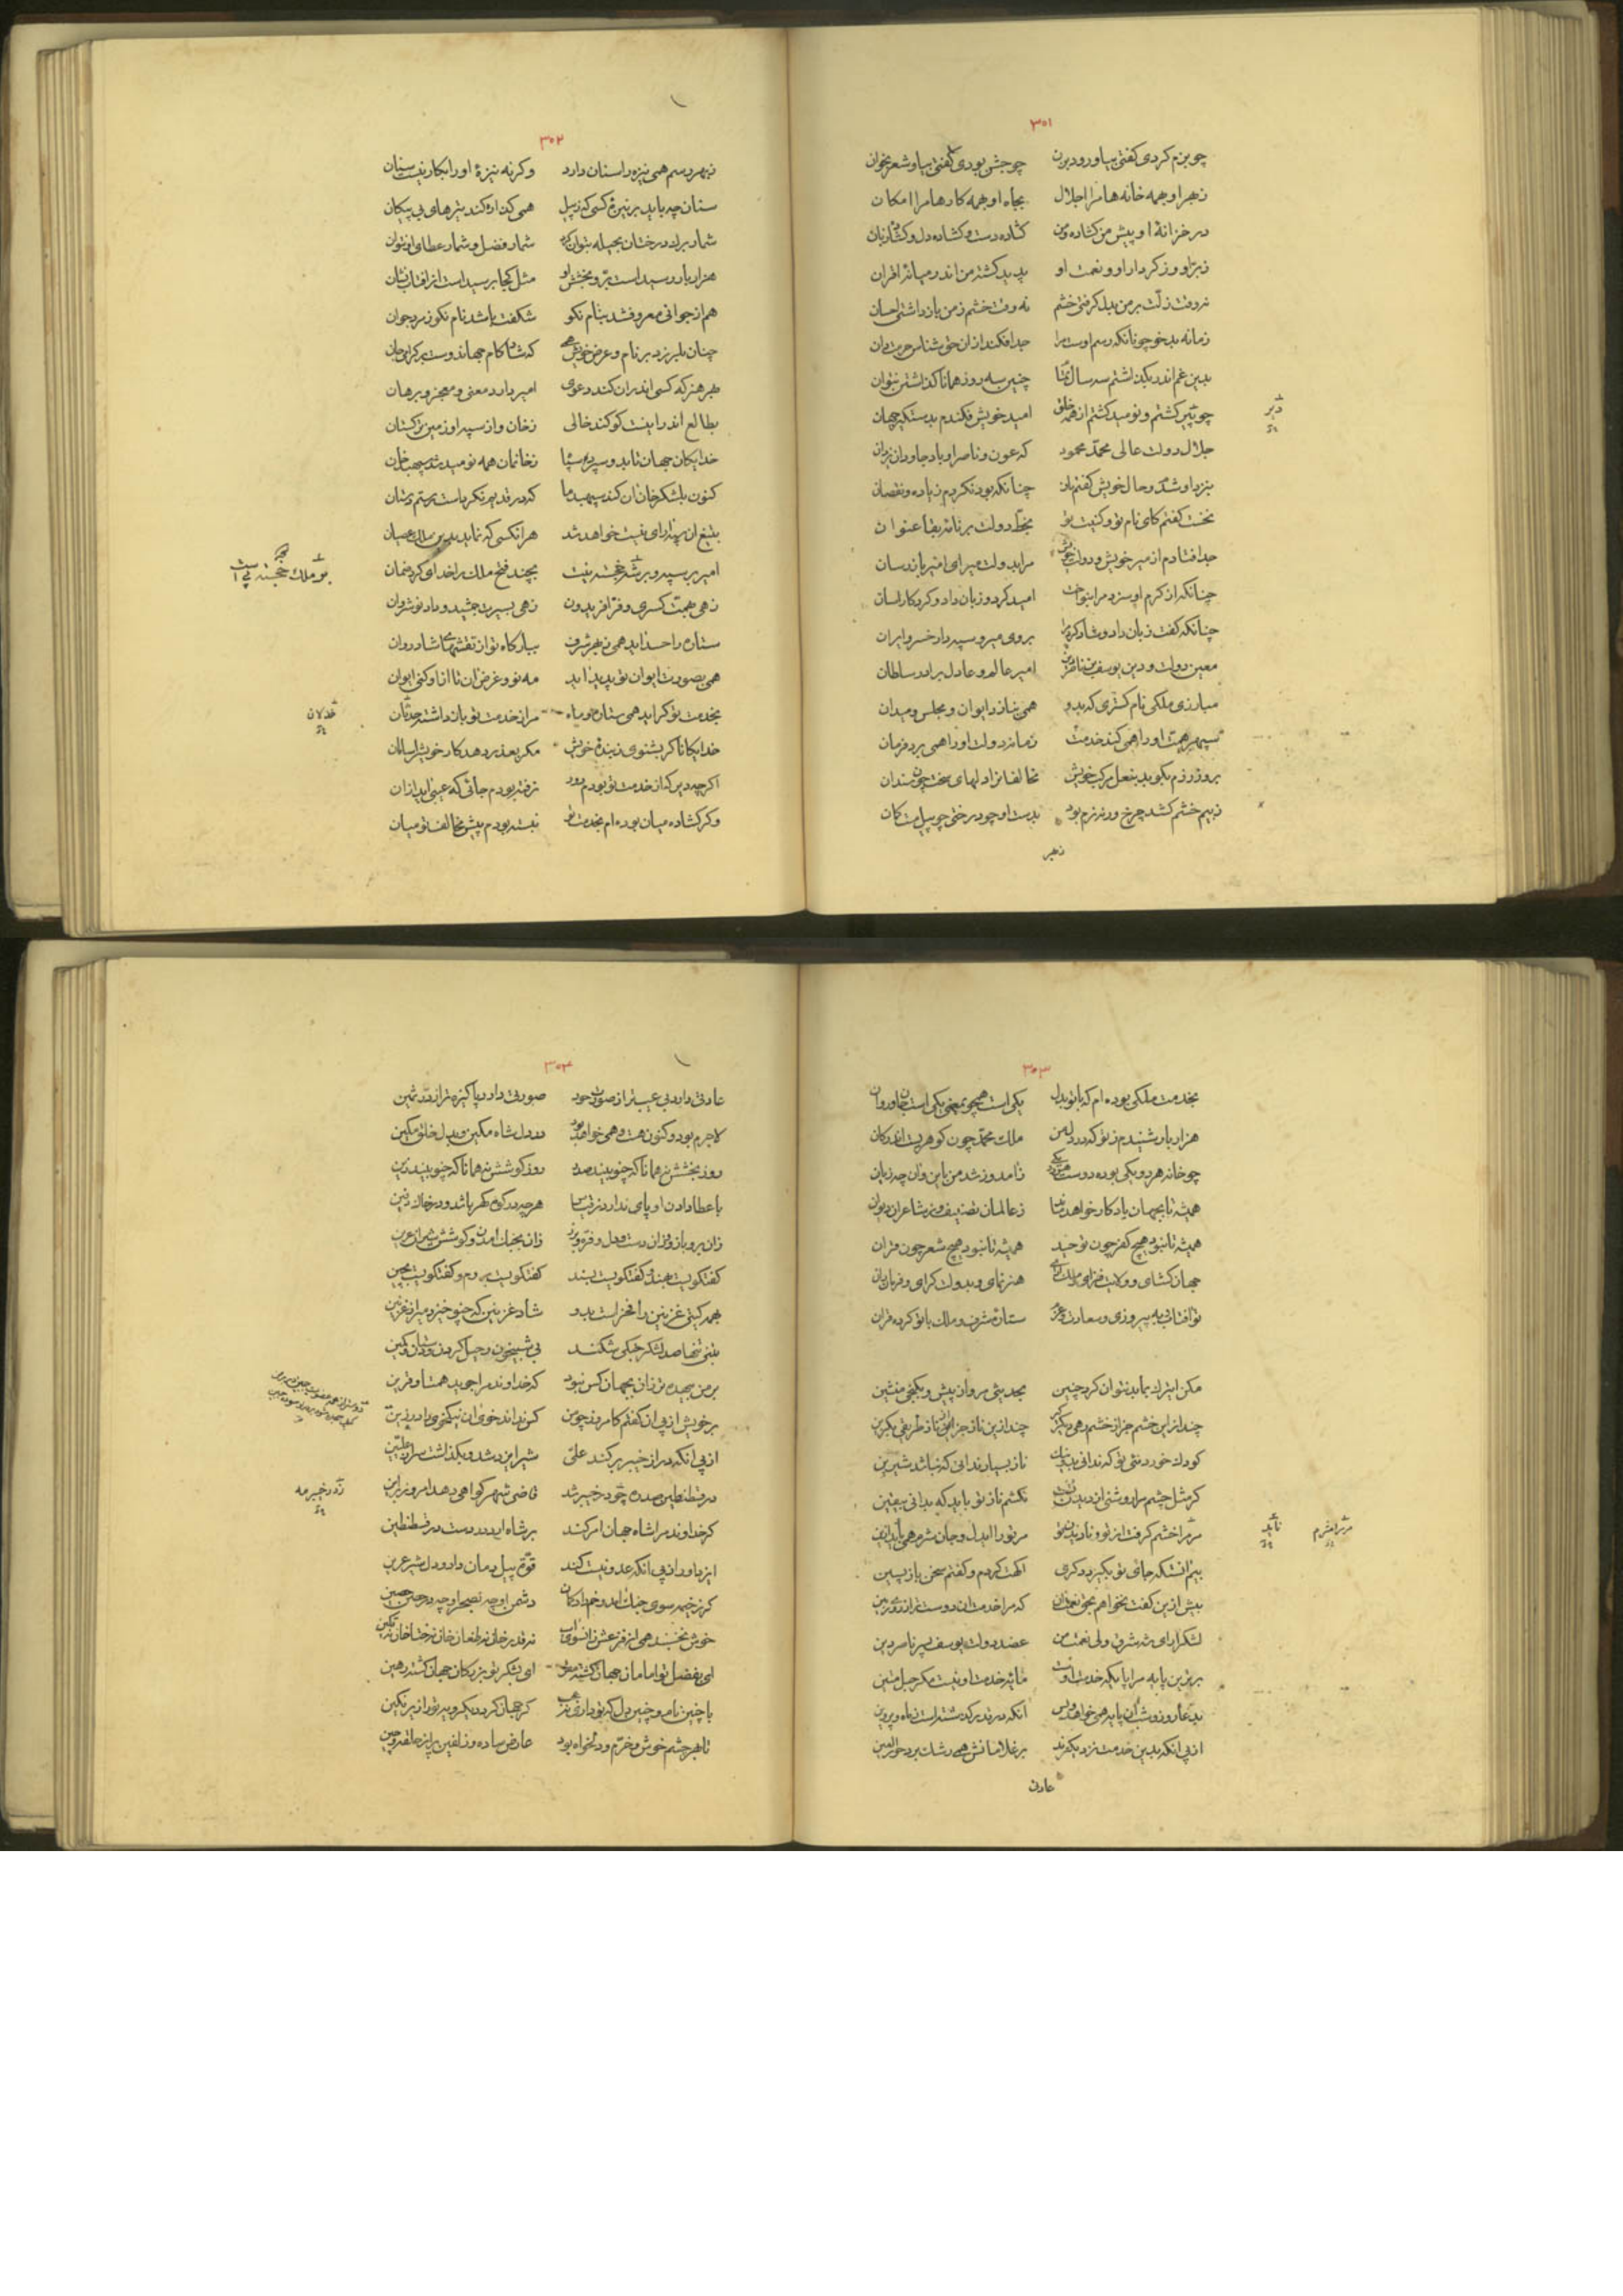 ۳۰۱
چو بزم کردی گفتی بیا و رود بزن چو جشن بودی گفتی بیا و شعر بخوان
ز بهر او بهمه خانه‌ها مرا اجلال بجاه او بهمه کارها مرا امکان
در خزانهٔ او پیش من گشاده و من گشاده دست و گشاده دل و گشاده زبان
ز برّ او و ز کردار او و نعمت او پدید گشته من اندر میانهٔ اقران
نه وقت زلّت بر من بدل گرفتی خشم نه وقت خشم ز من باز داشتی احسان
زمانه بدخو چونانکه رسم اوست مرا جدا فکند از ان حق شناس حرمت دان
بدین غم اندر بگذاشتم سه سال تمام چنین سه روز همانا گذاشتن نتوان
چو پیر گشتم و نومید گشتم از همه خلق امید خویش فکندم بدستگیر جهان
جلال دولت عالی محمد محمود که عون و ناصر او باد جاودان یزدان
بنزد او شدم و حال خویش گفتم باز چنانکه بود نکردم زیاده و نقصان
نخست گفتم کای نام تو و کنیت تو بخطّ دولت بر نامهٔ بقا عنوان
جدا فتادم از میر خویش و دولت خویش مرا بدولت میرای امیر باز رسان
چنانکه از کرم او سزد مرا بنواخت امید کرد و زبان داد و کرد کار آسان
چنانکه گفت زبان داد و شاد کرد مرا بروی میر و سپهدار خسرو ایران
معین دولت و دین یوسف بن ناصر دین امیر عالم و عادل برادر سلطان
مبارزی ملکی نام گستری که بدو همی بنازد ایوان و مجلس و میدان
سپهر همت او را همی کند خدمت زمانه دولت او را همی برد فرمان
بروز رزم بکوبد بنعل مرکب خویش مخالفانرا دلهای سخت چون سندان
ز بیم خشم کشد چرخ ورنه نرم بود بدست او چو درختی چو پیل مست کمان
ز بهر
دبیر
۳۰۲
ز بهر رسم همی نیزه را سنان دارد وگرنه نیزهٔ او را بکار نیست سنان
سنان چه باید بر نیزهٔ کسی که ز پیل همی گذاره کند تیرهای بی پیکان
شمار برگ درختان بحیله بتوان کرد شمار فضل و شمار عطای او نتوان
هزار بار رسیدست برّ و بخشش او مثل کجا برسیدست از آفتاب نشان
هم از جوانی معروف شد بنام نکو شگفت باشد نام نکو ز مرد جوان
چنان بلرزد بر نام و عرض خویش همی
بهر هنر که کسی اندران کند دعوی امیر دارد معنی و معجز و برهان
بطالع اندر اینست کو کند خالی ز خان و از سپه او زمین ترکستان
خدایگان جهان تا بدو سپرد سپاه ز خانمان همه نومید شد سپهبد خان
کنون بلشکر خانان کند سپهبد ما که در قدیم نکردست رستم دستان
بتیغ از سپه رای نیست خواهد شد هر آنکسی که نماید بدین ملک عصیان
امیر بر سپه و بر شه خجسته پیست بچند فتح ملک را خدای کرد ضمان
زهی بهمت کسری و فرّ افریدون زهی بسیرت جمشید و داد نوشروان
ستاره را حسد آید همی ز بهر شرف ببارگاه تو از نقشهای شادروان
همی بصورت ایوان تو پدید آید مه نو و غرض آن تا ازو کنی ایوان
بخدمت تو گراید همی ستاره و ماه مرا ز خدمت تو باز داشته حدثان
خدایگانا گر بشنوی ز بندهٔ خویش مگر بعذر رهد کار خویش را سامان
اگرچه دیر گه از خدمت تو بودم دور نرفته بودم جائی که عیبی آید ازان
وگر گشاده میان بوده‌ام بخدمت تو نبسته بودم پیش مخالف تو میان
خذلان
۳۰۳
بخدمت ملکی بوده‌ام که با تو بدل یکی است همچو بمعنی یکی است جان و روان
هزار بار شنیدم ز تو که در دل من ملک محمد چون گوهریست اندر کان
چو خانه هر دو یکی بوده دوست هر دو یکی ز آمد و ز شد من باین و آن چه زیان
همیشه تا بجهان یادگار خواهد ماند ز عالمان تصنیف و ز شاعران دیوان
همیشه تا نبود هیچ کفر چون توحید همیشه تا نبود هیچ شعر چون قرآن
جهان گشای و ولایت فزای و ملک آرای هنر نمای و بدولت گرای و فر بازان
تو آفتابی به پیروزی و سعادت و عزّ ستارهٔ شرف و ملک با تو کرده قران
مکن ای ترک مکن قدر چنین بحدیثی مرو از پیش و بکنجی منشین
چند ازین خشم جز از خشم رهی دیگر گیر چند ازین ناز جز این ناز طریقی بگزین
کودک خردی تو که ندانی بد و نیک ناز بسیار ندانی که نباشد شیرین
گر مثل چشم مرا روشنی از دیدن تست نکشم ناز تو باید که بدانی بیقین
اگهت کردم و گفتم سخن بازپسین
بیش ازین گفت نخواهم بحق نعمت آن که مرا خدمت آن دوستتر از زرّ زمین
لشکر آرای شه شرق ولی نعمت من عضد دولت یوسف پسر ناصر دین
برترین پایه مرا پایگه خدمت اوست پایهٔ خدمت او نیست مگر حبل متین
بدعا روز و شب آن پایه همی خواهد و بس آنکه در قدر گذشتست ز ماه و پروین
از پی آنکه بدین خدمت نزدیکترند بر غلامانش همی رشک برد حور العین
عادتی
مر شرم
تاید
۳۰۴
عادتی دارد بی عیب‌تر از صورت حور صورتی دارد پاکیزه‌تر از درّ ثمین
لاجرم بود و کنون هست و همی خواهد بود در دل شاه مکین و بدل خلق مکین
روز بخشش نه همانا که چنو بیند صدر روز کوشش نه همانا که چنو بیند زین
با عطا دادن او پای ندارد بقیاس هر چه در کوه گهر باشد و در خاک دفین
زان بجنگ آمدن و کوشش شیران عرین
گفتگویت بهند و گفتگویت بسند گفتگویت بروم و گفتگویت بچین
همه گیتی غزنین را فخرست بدو شاد غزنین که چنو خیزد میر از غزنین
بتنی تنها صد لشکر جنگی شکند بی شبیخون و حیل کردن و دستان و کمین
بر من بیهده‌تر زان بجهان کس نبود که خداوند مرا جوید همتا و قرین
از پی آنکه در از خیبر بر کند علی شیر ایزد شد و بگذاشت سر از علیین
در قسطنطین صد ره چو در خیبر شد قاضی شهر گواهی دهد امروز برین
گر خداوند مرا شاه جهان امر کند بر شاه آرد در دست در قسطنطین
ایزد او را از پی آنکه عدو نیست کند قوّت پیل دمان داد و دل شیر عرین
خوش نخسبند همی از فزعش زانسوی آب نه قدر خان نه طغان خان نه ختا خان نه تکین
ای بفضل تو امامان جهان گشته مقر ای بشکر تو بزرگان جهان گشته رهین
با چنین نام و چنین دل که تو داری نه عجب گر جهان گردد یکرویه تو را زیر نگین
تا بهر چشم خوش و خرّم و دلخواه بود عارض ساده و زلفین پر از حلقه و چین
ز در خیبر مه